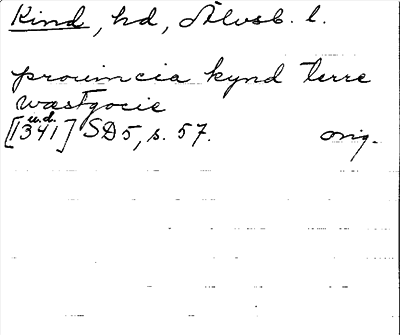 Kind, hd, Älvsb. l.
prouincia kynd terre
wæstgocie
[1341] u.d. SD5, s. 57. orig.